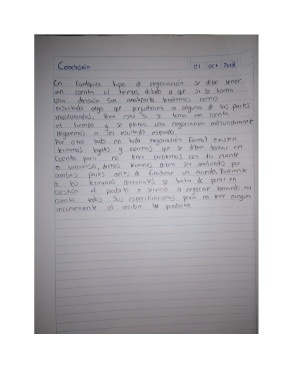 Conclusión 01 oct 2018
En cualquier tipo de negociación se debe tener
en cuenta el tiempo debido a que si se toma
una decisión sin analizarla tendremos como
resultado algo que perjudicara a alguna de las partes
involucradas. Pero esto si se toma en cuenta
el tiempo y se planea una negociación adecuadamente
llegaremos a un resultado esperado.
Por otro lado en toda negociación formal existen
terminos legales y normas que se deben tomar en
cuenta para no tener problemas con tu cliente
o viceversa, dichos terminos deben ser analizados por
ambas partes antes de finalizar un acuerdo. Referente
a los terminos comerciales se trata de poner en
cuestión el producto o servicio a negociar tomando en
cuenta todas sus especificaciones para no tener ningun
inconveniente al recibir el producto.